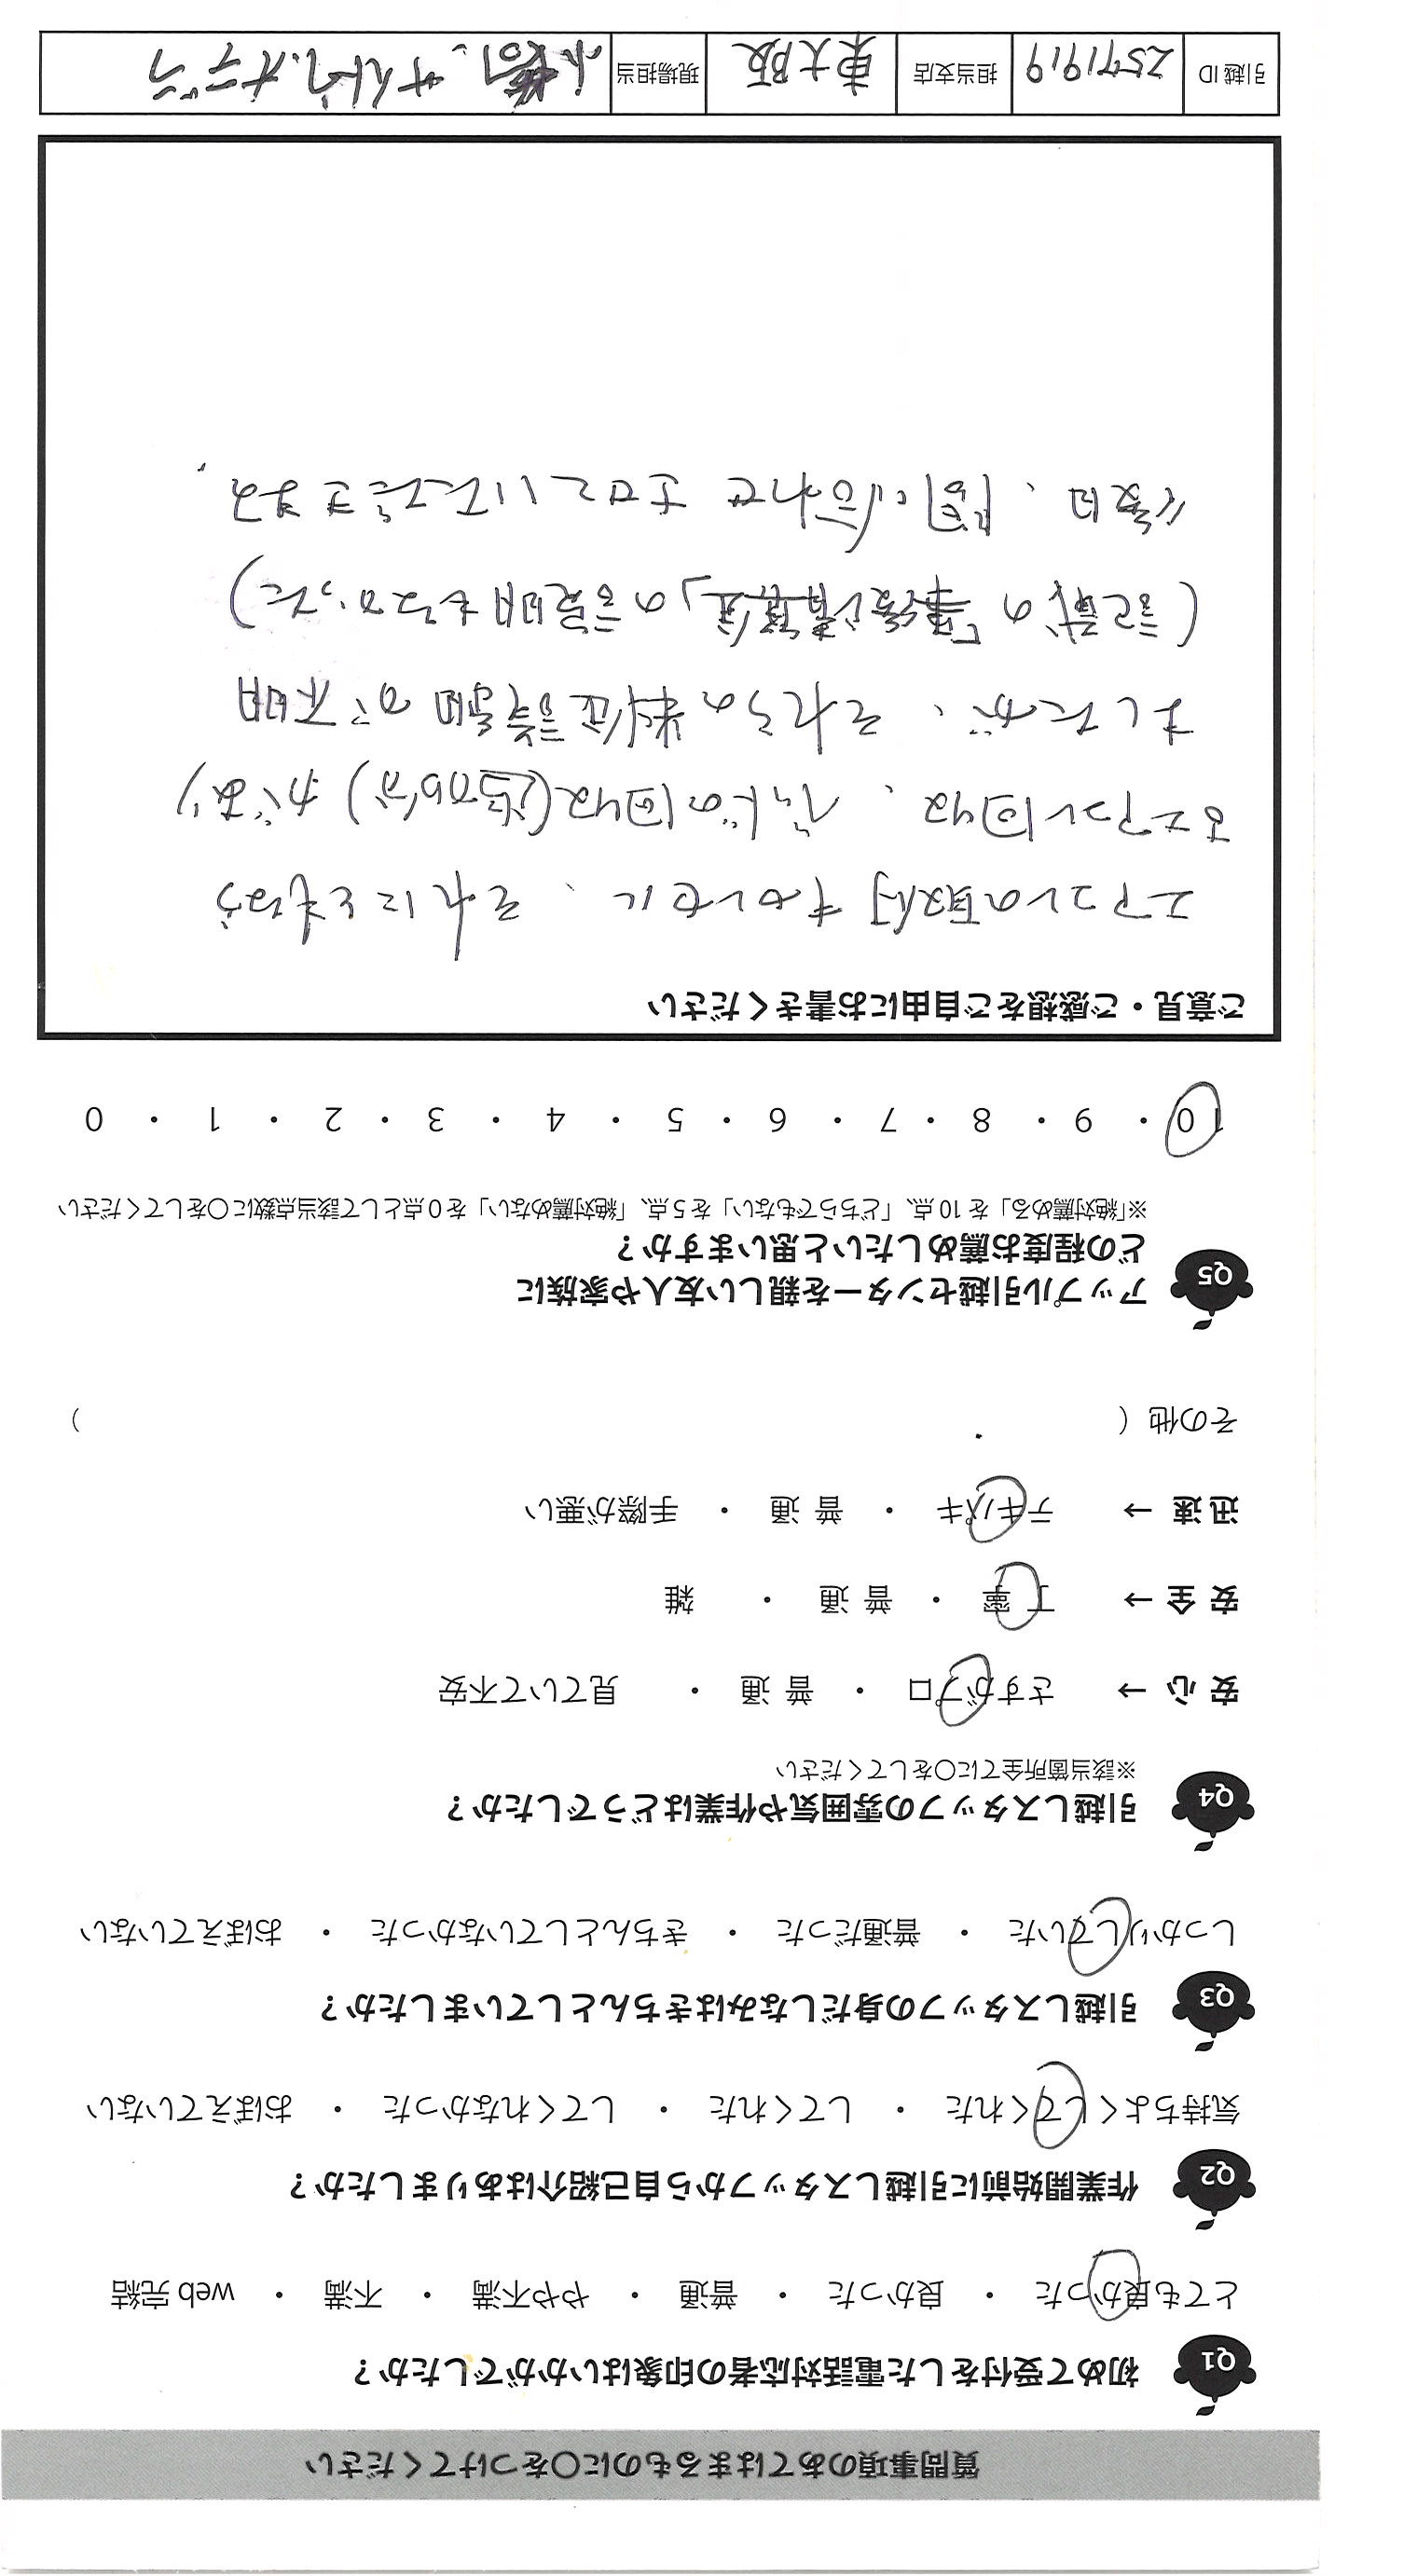 質問事項のあてはまるものに〇をつけてください
Q1 初めて受付をした電話対応者の印象はいかがでしたか？
とても良かった ・ 良かった ・ 普通 ・ やや不満 ・ 不満 ・ web 完結
Q2 作業開始前に引越しスタッフから自己紹介はありましたか？
気持ちよくしてくれた ・ してくれた ・ してくれなかった ・ おぼえていない
Q3 引越しスタッフの身だしなみはきちんとしていましたか？
しっかりしていた ・ 普通だった ・ きちんとしていなかった ・ おぼえていない
Q4 引越しスタッフの雰囲気や作業はどうでしたか？
※該当箇所全てに〇をしてください
安 心 → さすがプロ ・ 普 通 ・ 見ていて不安
安 全 → 丁 寧 ・ 普 通 ・ 雑
迅 速 → テキパキ ・ 普 通 ・ 手際が悪い
その他（ ）
Q5 アップル引越センターを親しい友人や家族に
どの程度お薦めしたいと思いますか？
※「絶対薦める」を 10 点、「どちらでもない」を 5 点、「絶対薦めない」を 0 点として該当点数に〇をしてください
10 ・ 9 ・ 8 ・ 7 ・ 6 ・ 5 ・ 4 ・ 3 ・ 2 ・ 1 ・ 0
ご意見・ご感想をご自由にお書きください
エアコンの取付キャンセル、それにともなう
エアコン回収、ベッドの回収(追加分)があり
ましたが、それらの料金詳細が不明
の「事後清算金」の説明もなかった)
後日、問い合わせ
引越 ID 2571919 担当支店 東大阪 現場担当